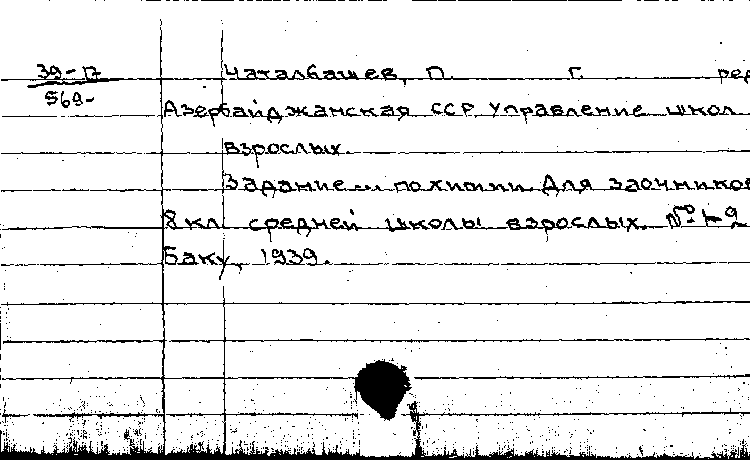 39-17
569-
Чаталбашев, П. Г. ред
Азербайджанская ССР Управление школ
взрослых.
Задание... по химии. Для заочников
8 кл. средней школы взрослых. №1-9
Баку, 1939.